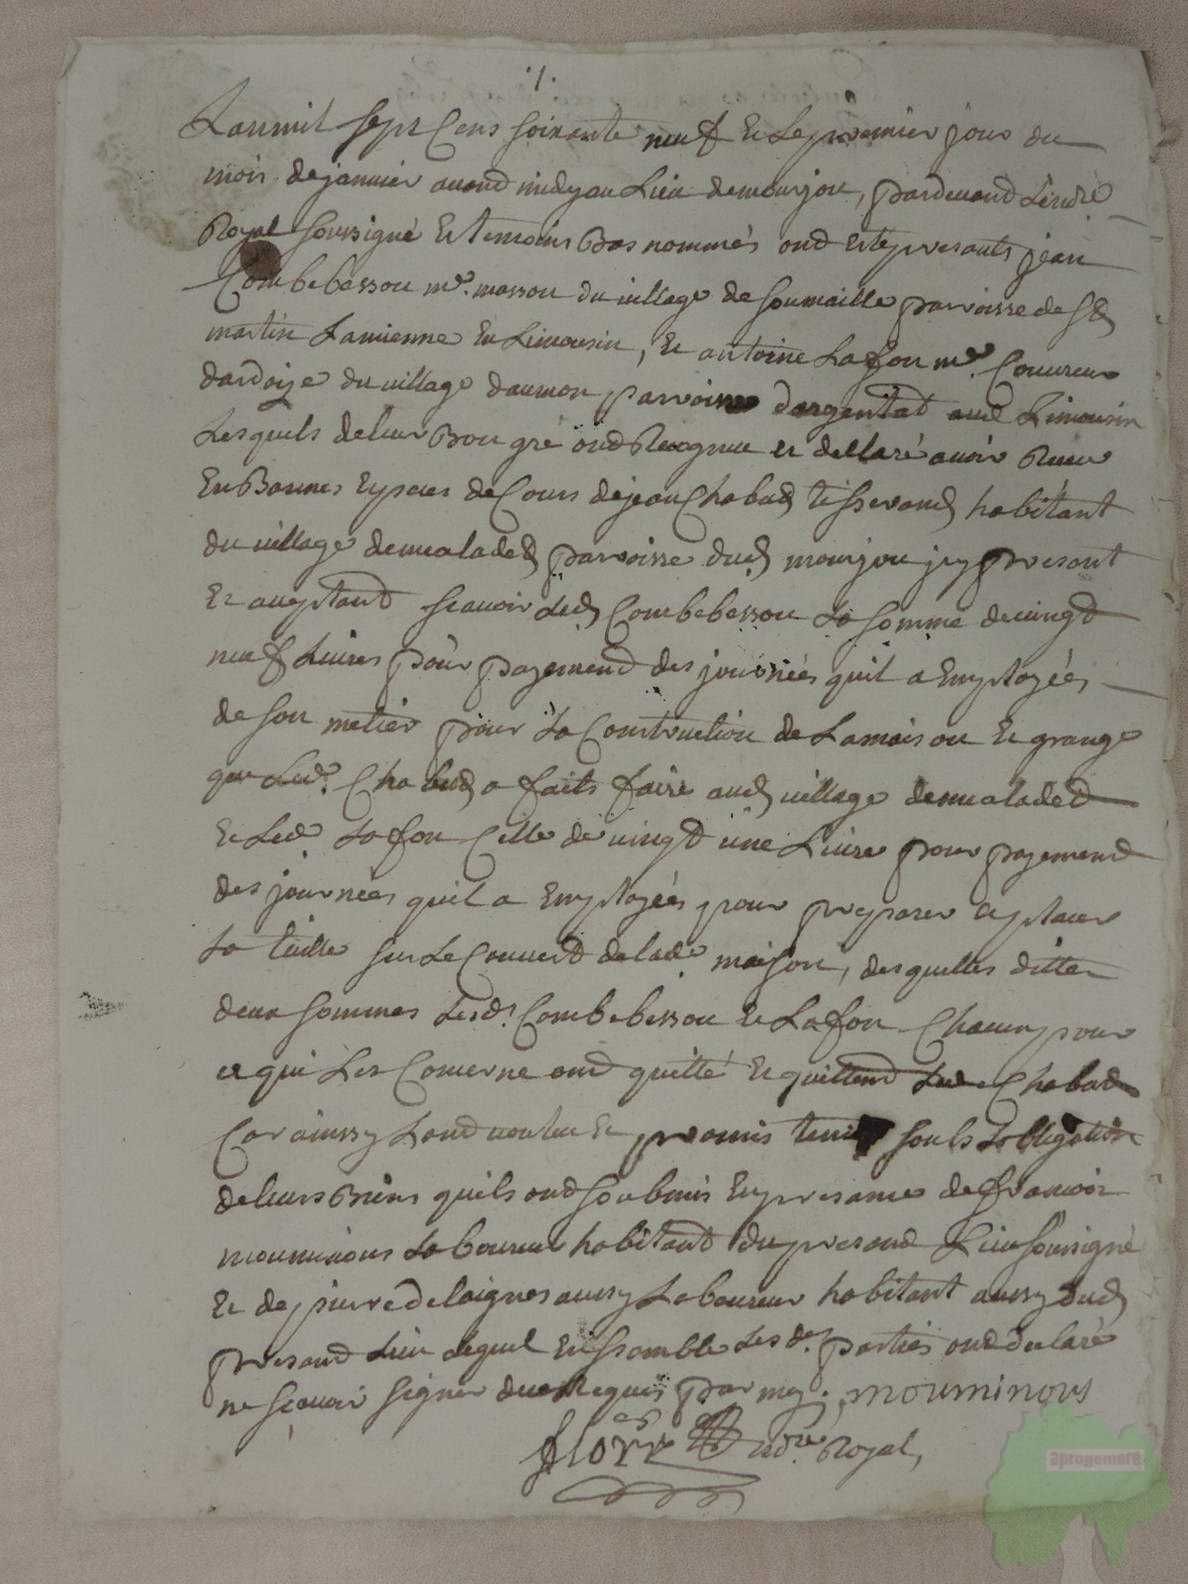 .1.
Lan mil sept Cens soixante neuf Et Le premier jour du
mois de janvier avand midy au Lieu de mourjou, pardevand Le no.re
Royal soussigné Et temoins Bas nommés ond Esté presants jean
Combebessou m.e masson du village de soumaille parroisse de S.t
martin Lamienne En Limousin, Et antoine Lafon m.e Couvreur
dardoize du village daumon parroisse dargentat aud Limousin
Lesquels de leur Bon gré ond Recognu et declaré avoir Receu
En Bonnes Especes de Cours de jean Chabud tisserand habitant
du village de maladet parroisse dud mourjou jcy presant
Et aceptand scavoir Led Combebessou La somme de vingt
neuf Livres pour payemend des journées quil a Employées
de son metier pour La Construction de La maison Et grange
que Led. Chabud a faits faire aud village de maladet
Et Led Lafon Celle de vingt une Livre pour payemend
des journées quil a Employées pour preparer et placer
La tuille sur Le Couvert de lad.e maison, desquelles dittes
deux sommes Lesd.s Combebessou Et Lafon Chacun pour
ce qui Les Concerne ond quitté Et quittend Led Chabud
Car ainssy Lond voulu Et promis tenir souls Lobligation
de leurs Biens quils ond soubmis En presance de francois
mouminous Laboureur habitand du presand Lieu soussigné
Et de pierre delaignes aussy Laboureur habitant aussy dud
presand Lieu lequel Enssemble Lesd.es parties ond declaré
ne scavoir signer de ce Requis par moy. mouminous
florr no.re Royal,
aprogemere